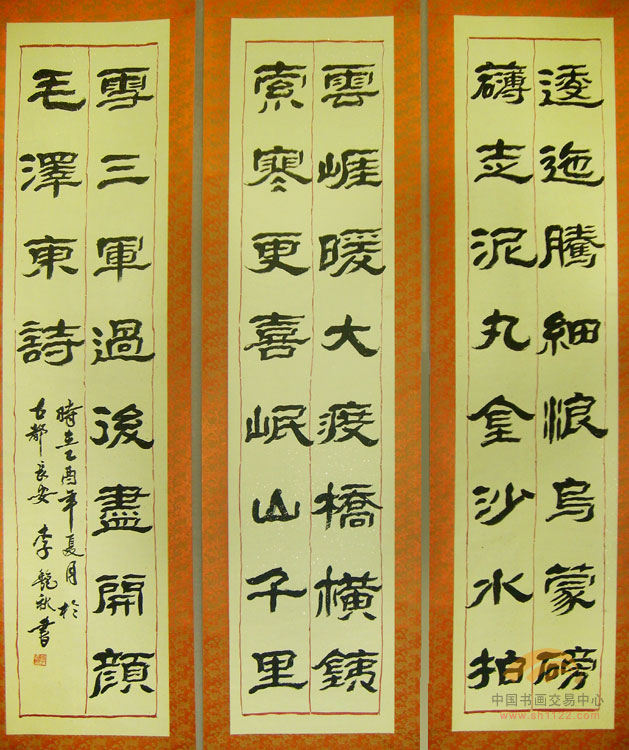 逶迤騰細浪烏蒙磅
礴走泥丸金沙水拍
雲崕暖大渡橋橫銕
索寒更喜岷山千里
雪三軍過後盡開顏
毛澤東詩
時在乙酉年夏月於
古都長安 李秋書
中国书画交易中心
www.sh1122.com